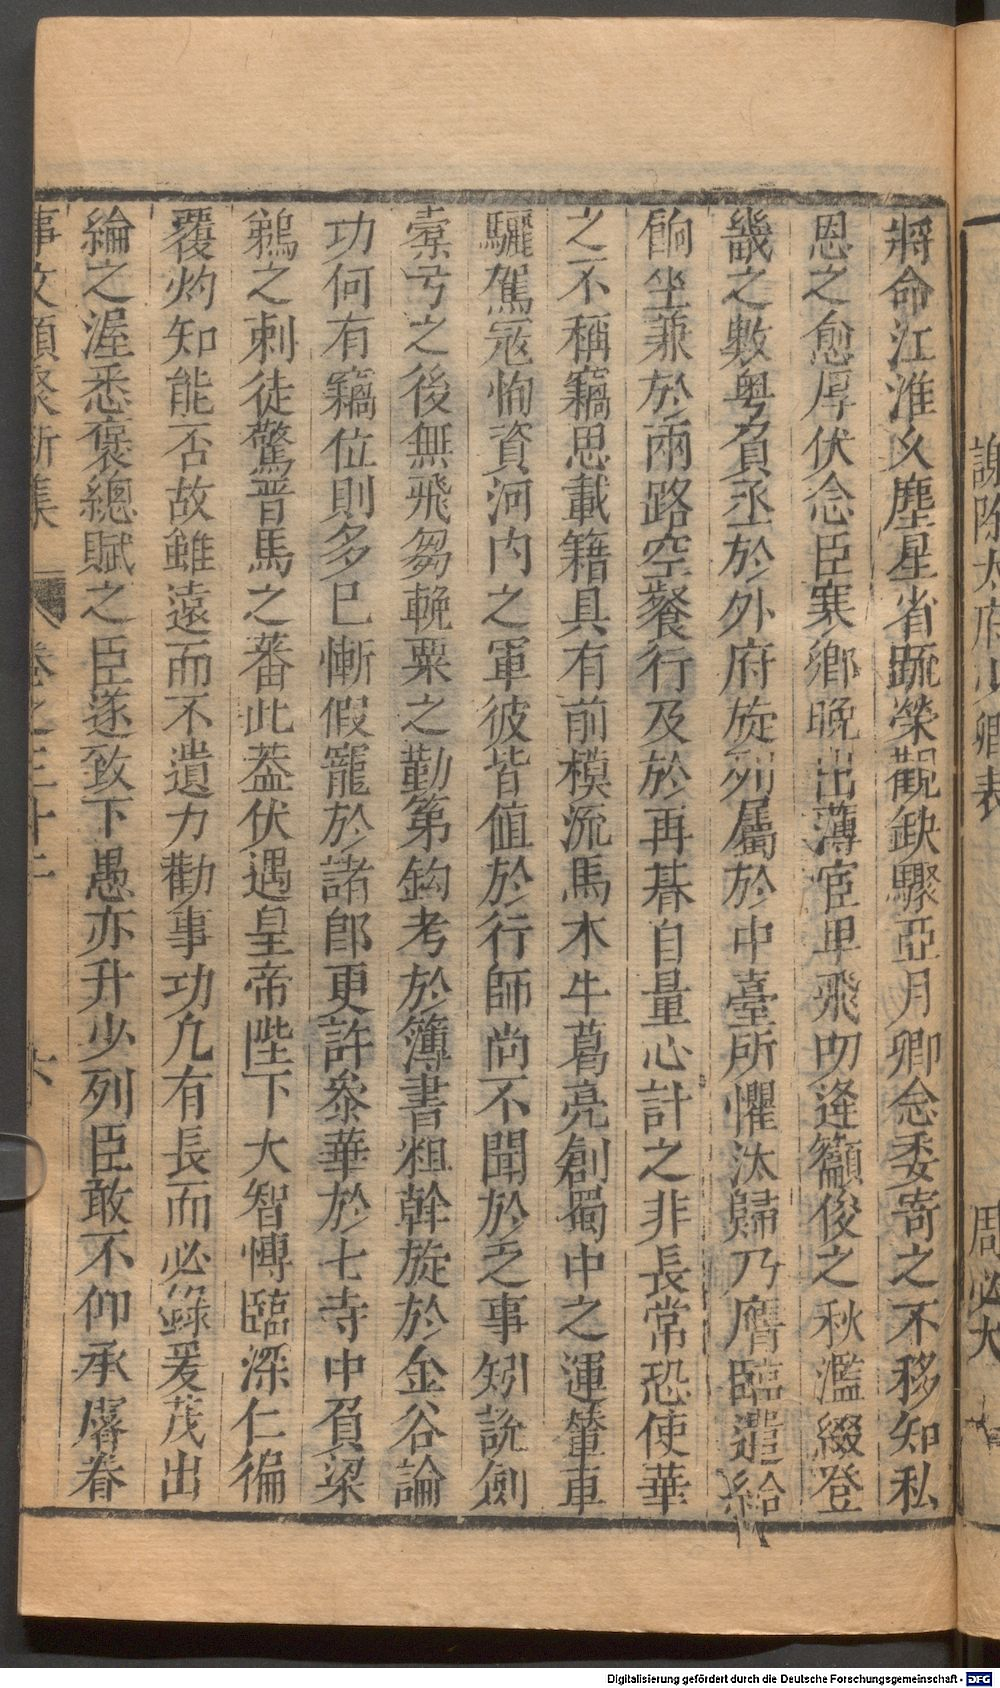 謝除太府少卿表 周必大
將命江淮久塵星省疏榮觀缺驟亞月卿念委寄之不移知私
恩之愈厚伏念臣寒鄉晚出薄宦卑飛叨逢籲俊之秋濫綴登
畿之數粤負丞於外府旋列屬於中臺所懼汰歸乃膺臨遣給
餉坐兼於兩路空餐行及於再朞自量心計之非長常恐使華
之不稱竊思載籍具有前模流馬木牛葛亮創蜀中之運輦車
驪駕冦恂資河內之軍彼皆值於行師尚不聞於乏事矧說劍
櫜弓之後無飛芻輓粟之勤第鈎考於簿書粗斡旋於金谷論
功何有竊位則多巳慚假寵於諸郎更許叅華於七寺中負梁
鵜之刺徒驚晋馬之蕃此葢伏遇皇帝陛下大智愽臨深仁徧
覆灼知能否故雖遠而不遺力勸事功凢有長而必錄爰茂出
綸之渥悉褒總賦之臣遂致下愚亦升少列臣敢不仰承睠眷
事文類聚新集 卷之三十二 六
Digitalisierung gefördert durch die Deutsche Forschungsgemeinschaft - DFG